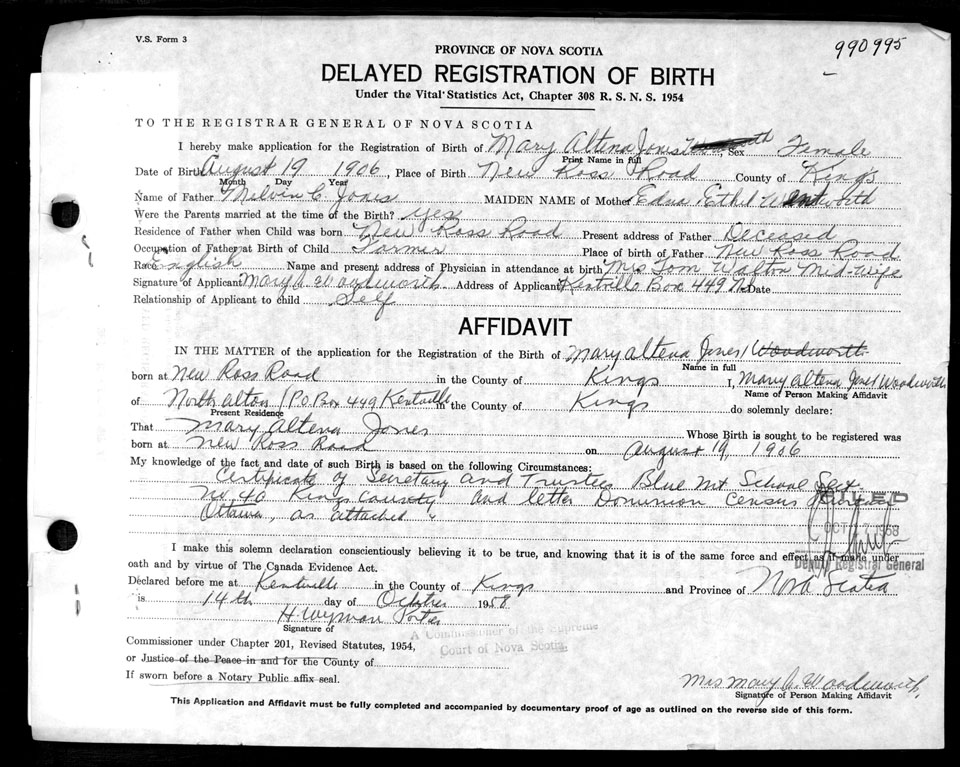 V.S. Form 3
990995
PROVINCE OF NOVA SCOTIA
DELAYED REGISTRATION OF BIRTH
Under the Vital Statistics Act, Chapter 308 R. S. N. S. 1954
TO THE REGISTRAR GENERAL OF NOVA SCOTIA
I hereby make application for the Registration of Birth of Mary Altena Jones, Sex Female
Print Name in full
Date of Birth August 19 1906, Place of Birth New Ross Road County of King's
Month Day Year
Name of Father Melvin C. Jones MAIDEN NAME of Mother Edna Ethel Wentworth
Were the Parents married at the time of the Birth? yes
Residence of Father when Child was born New Ross Road Present address of Father Deceased
Occupation of Father at Birth of Child Farmer Place of birth of Father New Ross Road
Race English Name and present address of Physician in attendance at birth Mrs Tom Walton Mid-wife
Signature of Applicant Mary A. Woodworth Address of Applicant Kentville Box 449 N.S. Date
Relationship of Applicant to child Self
AFFIDAVIT
IN THE MATTER of the application for the Registration of the Birth of Mary Altena Jones Woodworth
Name in full
born at New Ross Road in the County of Kings I, Mary Altena Jones Woodworth
Name of Person Making Affidavit
of North Alton / P.O. Box 449 Kentville in the County of Kings do solemnly declare:
Present Residence
That Mary Altena Jones Whose Birth is sought to be registered was
born at New Ross Road on August 19, 1906
My knowledge of the fact and date of such Birth is based on the following Circumstances:
Certificate of Secretary and Trustees Blue Mt School Sect.
No. 40 Kings County and letter Dominion Census
Ottawa, as attached
OCT 1958
I make this solemn declaration conscientiously believing it to be true, and knowing that it is of the same force and effect as if made under
Deputy Registrar General
oath and by virtue of The Canada Evidence Act.
Declared before me at Kentville in the County of Kings and Province of Nova Scotia
is 14th day of October 1958
H. Wyman Porter
Signature of
A Commissioner of the Supreme
Court of Nova Scotia
Commissioner under Chapter 201, Revised Statutes, 1954,
or Justice of the Peace in and for the County of
If sworn before a Notary Public affix seal.
Mrs Mary A. Woodworth
Signature of Person Making Affidavit
This Application and Affidavit must be fully completed and accompanied by documentary proof of age as outlined on the reverse side of this form.